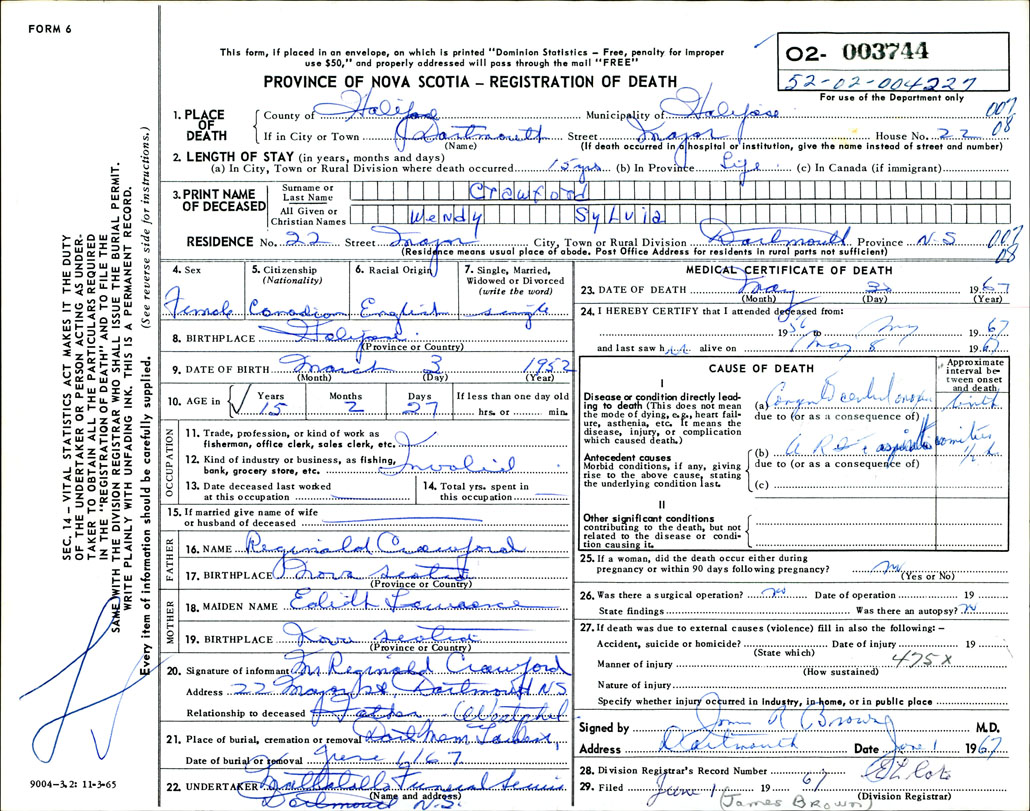 FORM 6
This form, if placed in an envelope, on which is printed "Dominion Statistics – Free, penalty for improper
use $50," and properly addressed will pass through the mail "FREE"
PROVINCE OF NOVA SCOTIA – REGISTRATION OF DEATH
02- 003744
52-02-004227
For use of the Department only
1. PLACE OF DEATH
County of Halifax Municipality of Halifax 007
If in City or Town Dartmouth Street Major House No. 22 08
(Name) (If death occurred in a hospital or institution, give the name instead of street and number)
2. LENGTH OF STAY (in years, months and days)
(a) In City, Town or Rural Division where death occurred 15 yrs (b) In Province Life (c) In Canada (if immigrant)
3. PRINT NAME OF DECEASED
Surname or Last Name Crawford
All Given or Christian Names Wendy Sylvia
RESIDENCE No. 22 Street Major City, Town or Rural Division Dartmouth Province N.S 007
(Residence means usual place of abode. Post Office Address for residents in rural parts not sufficient) 08
4. Sex Female
5. Citizenship (Nationality) Canadian
6. Racial Origin English
7. Single, Married, Widowed or Divorced (write the word) single
8. BIRTHPLACE Halifax
(Province or Country)
9. DATE OF BIRTH March 3 1952
(Month) (Day) (Year)
10. AGE in Years 15 Months 2 Days 27 If less than one day old hrs. or min.
OCCUPATION
11. Trade, profession, or kind of work as
fisherman, office clerk, sales clerk, etc.
12. Kind of industry or business, as fishing,
bank, grocery store, etc. Invalid
13. Date deceased last worked
at this occupation
14. Total yrs. spent in
this occupation
15. If married give name of wife
or husband of deceased
FATHER
16. NAME Reginald Crawford
17. BIRTHPLACE Nova Scotia
(Province or Country)
MOTHER
18. MAIDEN NAME Edith Lawrence
19. BIRTHPLACE Nova Scotia
(Province or Country)
20. Signature of informant Mr Reginald Crawford
Address 22 Major St, Dartmouth N.S
Relationship to deceased Father (Westphal
21. Place of burial, cremation or removal Dart Mem Gardens,
Date of burial or removal June 1, 67.
22. UNDERTAKER Funeral Service
(Name and address)
Dartmouth N.S.
MEDICAL CERTIFICATE OF DEATH
23. DATE OF DEATH May 1967
(Month) (Day) (Year)
24. I HEREBY CERTIFY that I attended deceased from:
1956 to May 1967
and last saw her alive on May 8 1967
CAUSE OF DEATH
Approximate interval between onset and death
I
Disease or condition directly lead-
ing to death (This does not mean
the mode of dying, e.g., heart fail-
ure, asthenia, etc. It means the
disease, injury, or complication
which caused death.)
(a) birth
due to (or as a consequence of)
Antecedent causes
Morbid conditions, if any, giving
rise to the above cause, stating
the underlying condition last.
(b) 1/2 h
due to (or as a consequence of)
(c)
II
Other significant conditions
contributing to the death, but not
related to the disease or condi-
tion causing it.
25. If a woman, did the death occur either during
pregnancy or within 90 days following pregnancy? no
(Yes or No)
26. Was there a surgical operation? no Date of operation 19
State findings Was there an autopsy? no
27. If death was due to external causes (violence) fill in also the following: –
Accident, suicide or homicide? Date of injury 19
(State which) 475X
Manner of injury
(How sustained)
Nature of injury
Specify whether injury occurred in Industry, in home, or in public place
Signed by James R Brown M.D.
Address Dartmouth Date June 1 1967
28. Division Registrar's Record Number
29. Filed June 1 1967
(James Brown) (Division Registrar)
SEC. 14 – VITAL STATISTICS ACT MAKES IT THE DUTY
OF THE UNDERTAKER OR PERSON ACTING AS UNDER-
TAKER TO OBTAIN ALL THE PARTICULARS REQUIRED
IN THE "REGISTRATION OF DEATH" AND TO FILE THE
SAME WITH THE DIVISION REGISTRAR WHO SHALL ISSUE THE BURIAL PERMIT.
WRITE PLAINLY WITH UNFADING INK. THIS IS A PERMANENT RECORD.
Every item of information should be carefully supplied. (See reverse side for instructions.)
9004–3.2: 11-3-65